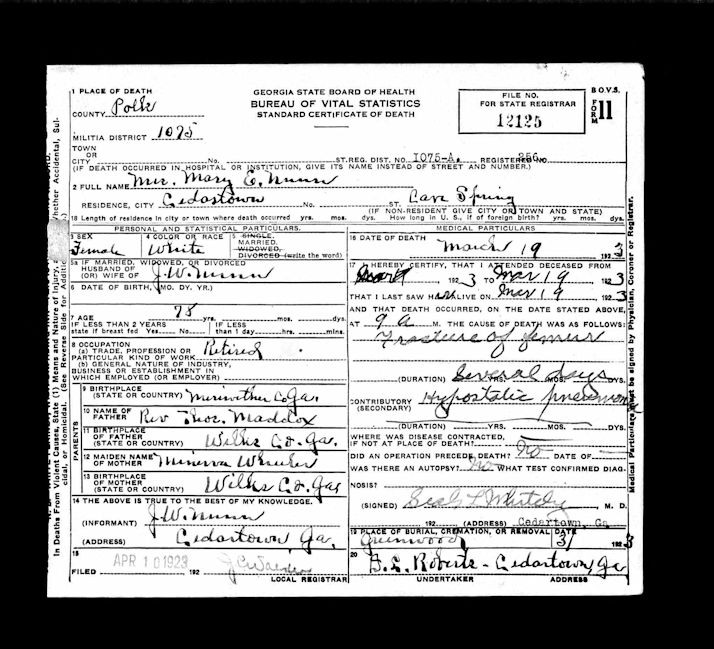 1 PLACE OF DEATH
COUNTY Polk
MILITIA DISTRICT 1075
TOWN
OR
CITY No. ST. REG. DIST. NO. 1075-A. REGISTERED NO. 256
(IF DEATH OCCURRED IN HOSPITAL OR INSTITUTION, GIVE ITS NAME INSTEAD OF STREET AND NUMBER.)
GEORGIA STATE BOARD OF HEALTH
BUREAU OF VITAL STATISTICS
STANDARD CERTIFICATE OF DEATH
FILE NO.
FOR STATE REGISTRAR
12125
B.O.V.S.
FORM 11
2 FULL NAME Mrs. Mary E. Nunn
RESIDENCE, CITY Cedartown No. ST. Cave Spring
(IF NON-RESIDENT GIVE CITY OR TOWN AND STATE)
18 Length of residence in city or town where death occurred yrs. mos. dys. How long in U. S., if of foreign birth? yrs. mos. dys.
PERSONAL AND STATISTICAL PARTICULARS.
3 SEX Female
4 COLOR OR RACE White
5 SINGLE,
MARRIED,
WIDOWED,
DIVORCED (write the word)
5a IF MARRIED, WIDOWED, OR DIVORCED
HUSBAND OF
(OR) WIFE OF J. W. Nunn
6 DATE OF BIRTH, (MO. DY. YR.)
7 AGE 78 yrs. mos. dys.
IF LESS THAN 2 YEARS
state if breast fed Yes No
IF LESS
than 1 day hrs. mins.
8 OCCUPATION
(a) TRADE, PROFESSION OR
PARTICULAR KIND OF WORK Retired
(b) GENERAL NATURE OF INDUSTRY,
BUSINESS OR ESTABLISHMENT IN
WHICH EMPLOYED (OR EMPLOYER)
PARENTS
9 BIRTHPLACE
(STATE OR COUNTRY) Meriwether Co Ga.
10 NAME OF
FATHER Rev Thos. Maddox
11 BIRTHPLACE
OF FATHER
(STATE OR COUNTRY) Wilks Co. Ga.
12 MAIDEN NAME
OF MOTHER Minerva Wheeler
13 BIRTHPLACE
OF MOTHER
(STATE OR COUNTRY) Wilks Co. Ga
14 THE ABOVE IS TRUE TO THE BEST OF MY KNOWLEDGE.
(INFORMANT) J. W. Nunn
(ADDRESS) Cedartown Ga.
15
FILED APR 10 1923 192
LOCAL REGISTRAR
MEDICAL PARTICULARS
16 DATE OF DEATH
March 19 192 3
17 I HEREBY CERTIFY, THAT I ATTENDED DECEASED FROM
192 3 TO Mar 19 192 3
THAT I LAST SAW H ALIVE ON Mar 19 192 3
AND THAT DEATH OCCURRED, ON THE DATE STATED ABOVE,
AT 9 a M. THE CAUSE OF DEATH WAS AS FOLLOWS:
Fracture of femur
(DURATION) Several days YRS. MOS. DYS.
CONTRIBUTORY
(SECONDARY) Hypostatic pneumonia
(DURATION) YRS. MOS. DYS.
WHERE WAS DISEASE CONTRACTED,
IF NOT AT PLACE OF DEATH?
DID AN OPERATION PRECEDE DEATH? No DATE OF
WAS THERE AN AUTOPSY? No WHAT TEST CONFIRMED DIAG-
NOSIS?
(SIGNED) M. D.
192 (ADDRESS) Cedartown, Ga
19 PLACE OF BURIAL, CREMATION, OR REMOVAL DATE
Greenwood 192 3
20 Roberts - Cedartown, Ga
UNDERTAKER ADDRESS
In Deaths From Violent Causes, State (1) Means and Nature of Injury,
cidal, or Homicidal. (See Reverse Side for
Medical Particulars must be signed by Physician, Coroner or Registrar.